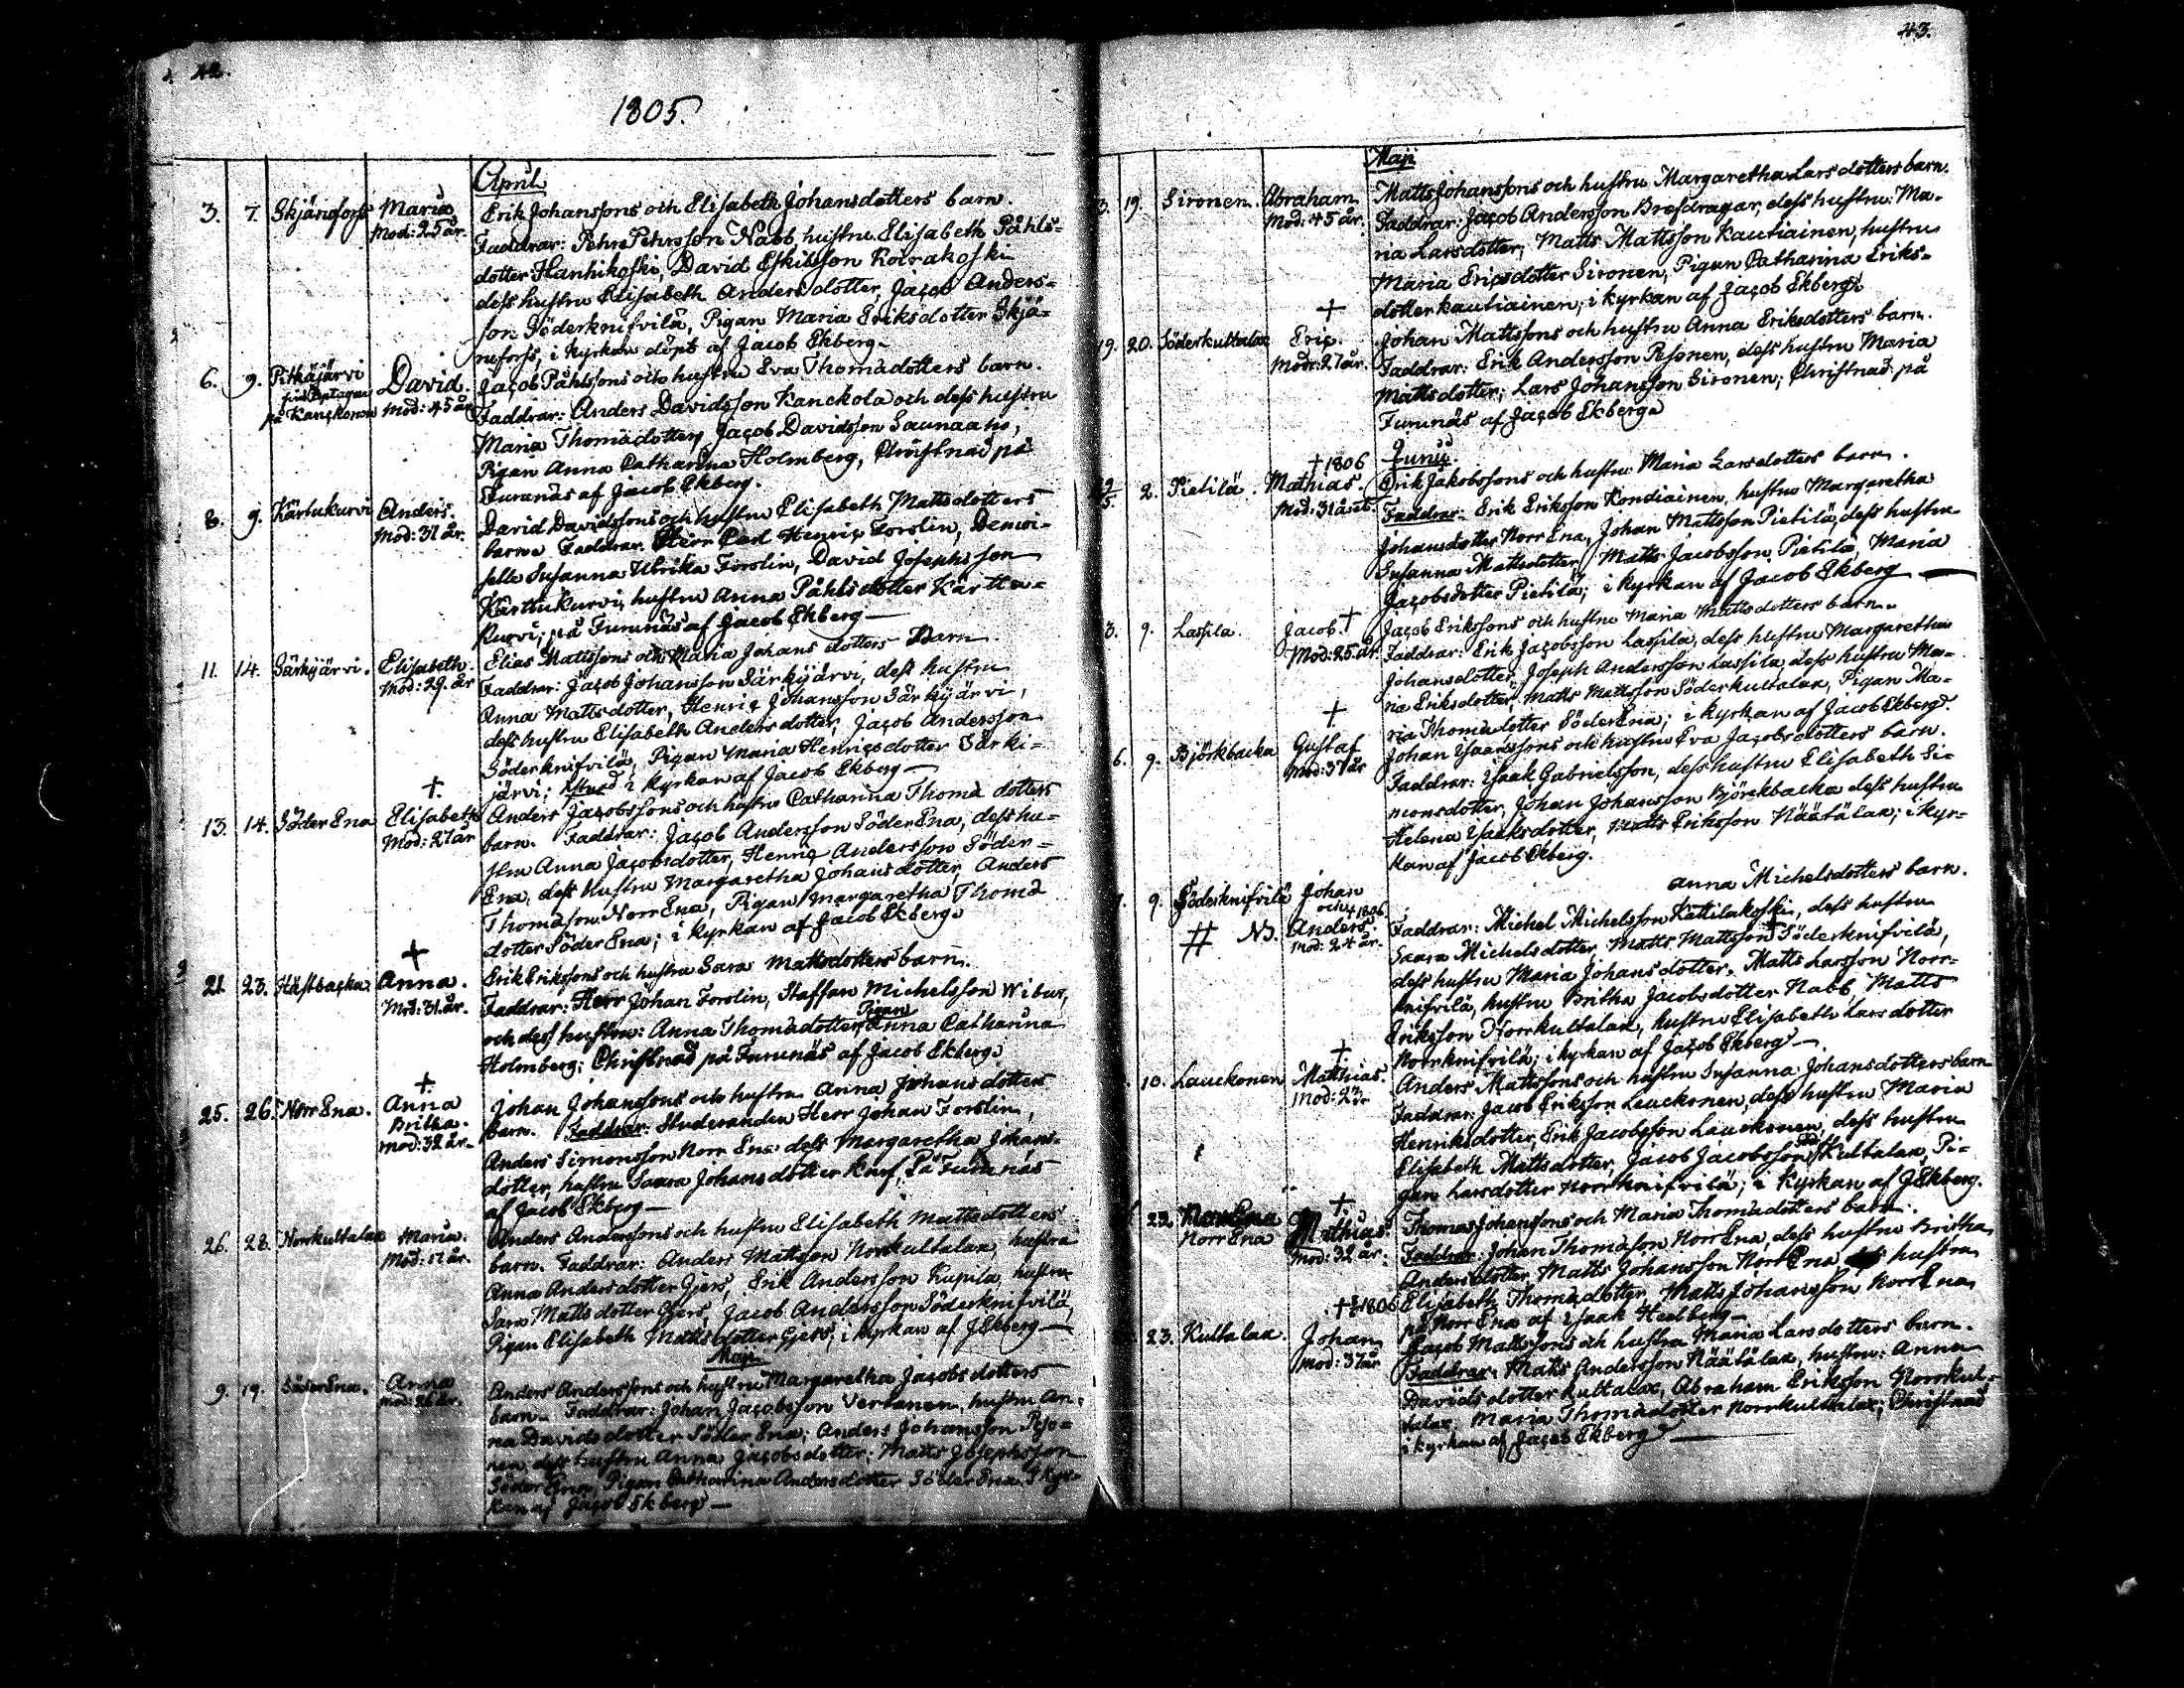 42.
1805.
April
3. 7. Skjäriforss Maria Erik Johanssons och Elisabeth Johansdotters barn.
Mod: 25 år. Faddrar: Pehr Pehrsson Nabb, hustru Elisabeth Påhls-
dotter Hanhikoski, David Eskilsson Koirakoski
dess hustru Elisabeth Anders dotter, Jacob Anders-
son Söderknifvilä, Pigan Maria Eriksdotter Skjä-
riforss, i kyrkan döpt af Jacob Ekberg
6. 9. Pitkäjärvi David. Jacob Påhlssons och hustru Eva Thomädotters barn.
på Kanckonen Mod: 45 år Faddrar: Anders Davidsson Kanckola och dess hustru
Maria Thomädotter, Jacob Davidsson Saunaaho,
Pigan Anna Catharina Holmberg, Christnad på
Furunäs af Jacob Ekberg.
8. 9. Kärtukurvi Anders. David Davidssons och hustru Elisabeth Mattsdotters
Mod: 37 år. barn. Faddrar: Herr Carl Henric Forslin, Demoi-
selle Susanna Ulrika Forslin, David Josephsson
Kärttukurvi, hustru Anna Påhlsdotter Kärttu-
kurvi; på Furunäs af Jacob Ekberg —
11. 14. Särkijärvi. Elisabeth. Elias Mattssons och Maria Johans dotters Barn.
Mod: 29. år Faddrar: Jacob Johansson Särkijärvi, dess hustru
Anna Mattsdotter, Henric Johansson Särkijärvi,
dess hustru Elisabeth Andersdotter, Jacob Andersson
Söderknifvilä, Pigan Maria Henricsdotter Särki-
järvi; i kyrkan af Jacob Ekberg —
†.
13. 14. Söder Ena Elisabeth Anders Jacobssons och hustru Catharina Thomä dotters
Mod: 27 år barn. Faddrar: Jacob Andersson Söder Ena, dess hu-
stru Anna Jacobsdotter, Henric Andersson Söder-
Ena, dess hustru Margaretha Johansdotter, Anders
Thomason Norr Ena, Pigan Margaretha Thomä
dotter Söder Ena; i kyrkan af Jacob Ekberg
†
21 23. Hästbacka Anna. Erik Erikssons och hustru Sara Mattsdotters barn.
Mod: 31 år. Faddrar: Herr Johan Forslin, Staffan Michelsson Wibus,
och dess hustru: Anna Thomädotter, Pigan Anna Catharina
Holmberg; Christnad på Furunäs af Jacob Ekberg
†
25. 26. Norr Ena. Anna Johan Johanssons och hustru Anna Johans dotters
Britha. barn. Faddrar: Studeranden Herr Johan Forslin,
Mod: 32 år. Anders Simonsson Norr Ena dess Margaretha Johans-
dotter, hustru Saara Johansdotter Knif, På Furunäs
af Jacob Ekberg —
26. 28. Norrkultalax Maria. Anders Anderssons och hustru Elisabeth Mattsdotters
barn. Faddrar: Anders Mattsson Norrkultalax, hustru
Anna Andersdotter Gjers, Erik Andersson Kupila, hustru
Sara Matts dotter Gjers, Jacob Andersson Söderknifvilä,
Pigan Elisabeth Mattsdotter Gjers; i kyrkan af J Ekberg —
Maji
9. 19. Söder Ena. Anna Anders Anderssons och hustru Margaretha Jacobs dotters
Mod: 26 år. barn. Faddrar: Johan Jacobsson Vertanen, hustru An-
na Davids dotter Söder Ena; Anders Johansson Peso-
nen, dess hustru Anna Jacobsdotter. Matts Josephsson
Söder Ena, Pigan Catharina Andersdotter Söder Ena. I kyr-
kan af Jacob Ekberg —
43.
Maji
19. Sironen. Abraham Matts Johanssons och hustru Margaretha Lars dotters barn.
Mod: 45 år. Faddrar: Jacob Andersson Brefdragar, dess hustru: Ma-
ria Larsdotter, Matts Mattsson Kautiainen, hustru
Maria Ericsdotter Sironen, Pigan Catharina Eriks-
dotter Kautiainen; i kyrkan af Jacob Ekberg
†
19. 20. Söderkultalax Eric. Johan Mattssons och hustru Anna Eriksdotters barn.
Modr: 27 år. Faddrar: Erik Andersson Pesonen, dess hustru Maria
Mattsdotter; Lars Johansson Sironen; Christnad på
Furunäs af Jacob Ekberg
Junii.
† 1806
2. Pietilä. Mathias. Erik Jakobssons och hustru Maria Larsdotters barn.
Mod: 31 året. Faddrar: Erik Eriksson Kondiainen, hustru Margaretha
Johansdotter Norr Ena, Johan Mattsson Pietilä, dess hustru
Susanna Mattsdotter, Matts Jacobsson Pietilä, Maria
Jacobsdotter Pietilä; i kyrkan af Jacob Ekberg —
3. 9. Lassila. Jacob. † Jacob Erikssons och hustru Maria Mattsdotters barn.
Mod: 25. år. Faddrar: Erik Jacobsson Lassila, dess hustru Margaretha
Johansdotter, Joseph Andersson Lassila, dess hustru Ma-
ria Eriksdotter, Matts Mattsson Söderkultalax, Pigan Ma-
ria Thomädotter Söder Ena; i kyrkan af Jacob Ekberg.
†
6. 9. Björkbacka Gustaf Johan Isaacssons och hustru Eva Jacobsdotters barn.
Mod: 37 år Faddrar: Isaak Gabrielsson, dess hustru Elisabeth Si-
monsdotter, Johan Johansson Björckbacka dess hustru
Helena Isaaksdotter, Matts Eriksson Näätälax; i kyr-
kan af Jacob Ekberg.
9. Söderknifvilä Johan Anna Michelsdotters barn.
och † 1806
# N3. Anders. Faddrar: Michel Michelsson Kattilakoski, dess hustru
Mod: 24 år. Saara Michelsdotter, Matts Mattsson Söderknifvilä,
dess hustru Maria Johansdotter. Matts Larsson Norr-
knifvilä, hustru Britha Jacobsdotter Nabb, Matts
Eriksson Norrkultalax, hustru Elisabeth Larsdotter
Norrknifvilä; i kyrkan af Jacob Ekberg —.
†
10. Lauckonen Matthias. Anders Mattssons och hustru Susanna Johansdotters barn
Mod: 23 Faddrar: Jacob Eriksson Lauckonen, dess hustru Maria
Henriksdotter, Erik Jacobsson Lauckonen, dess hustru
Elisabeth Mattsdotter, Jacob Jacobsson Kultalax, Pi-
gan Larsdotter Norrknifvilä; i kyrkan af J Ekberg.
†.
23. Norr Ena Mathias. Thomas Johanssons och Maria Thomädotters barn.
Norr Ena Mod: 32 år. Faddrar: Johan Thomason Norr Ena, dess hustru Britha
Andersdotter, Matts Johansson Norr Ena hustru
Elisabeth Thomädotter, Matts Johansson Norr Ena
på Norr Ena af Isaak Hedberg —
† 1806
23. Kultalax. Johan Jacob Mattssons och hustru Maria Larsdotters barn.
Mod: 37 år Faddrar: Matts Andersson Näätälax, hustru: Anna
Davidsdotter Kultalax, Abraham Eriksson Norrkul-
talax, Maria Thomädotter Norrkultalax; Christnad
i kyrkan af Jacob Ekberg —